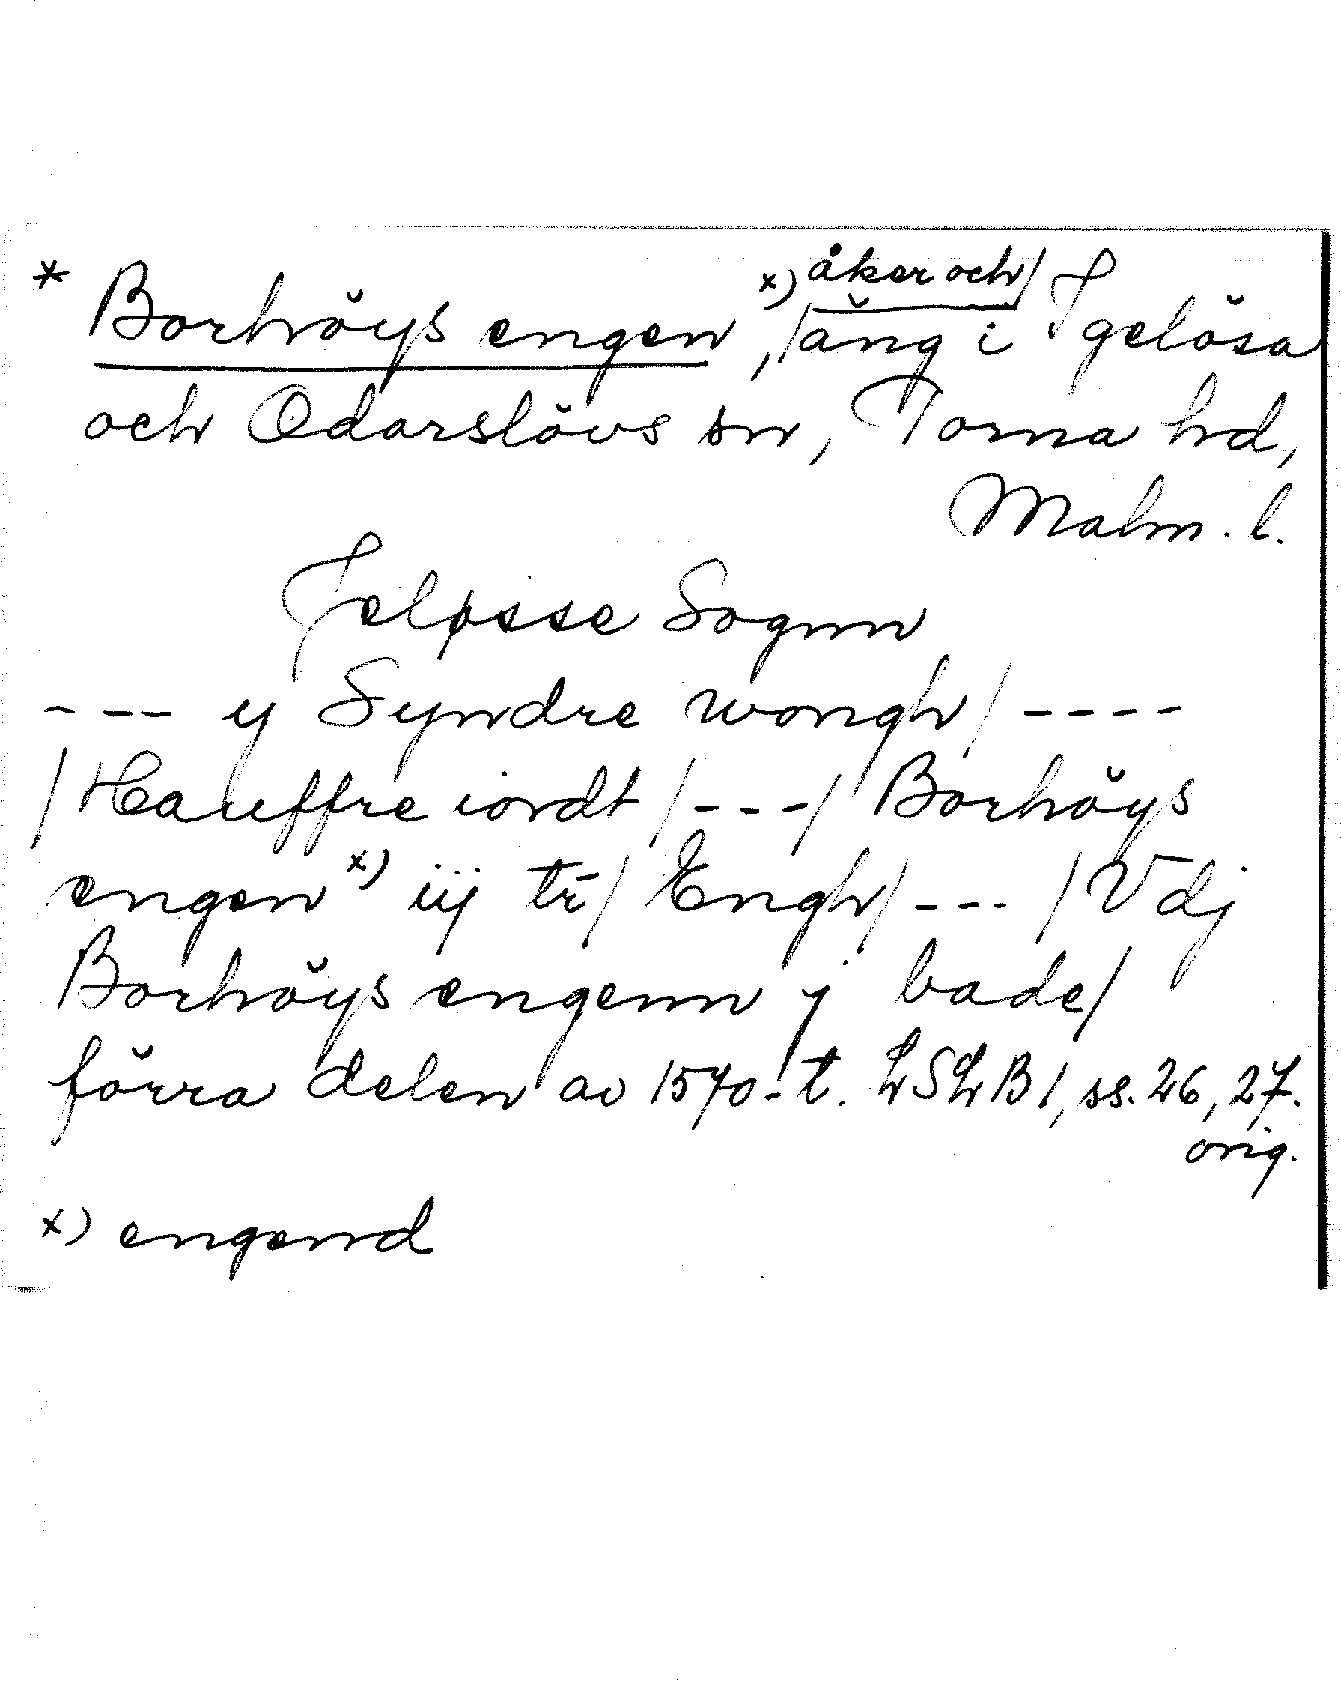 * Borhöys engen x), /åker och/ äng i Igelösa
och Odarslövs sn, Torna hd,
Malm. l.
Jeløsse Sognn
--- y Syndre wongh/ ----
/Hauffre iordt/---/ Borhöys
engen x) iij tr̄/ Engh/--- /Vdj
Borhöys engenn j bade/
förra delen av 1570-t. LSLB 1, ss. 26, 27.
orig.
x) engennd